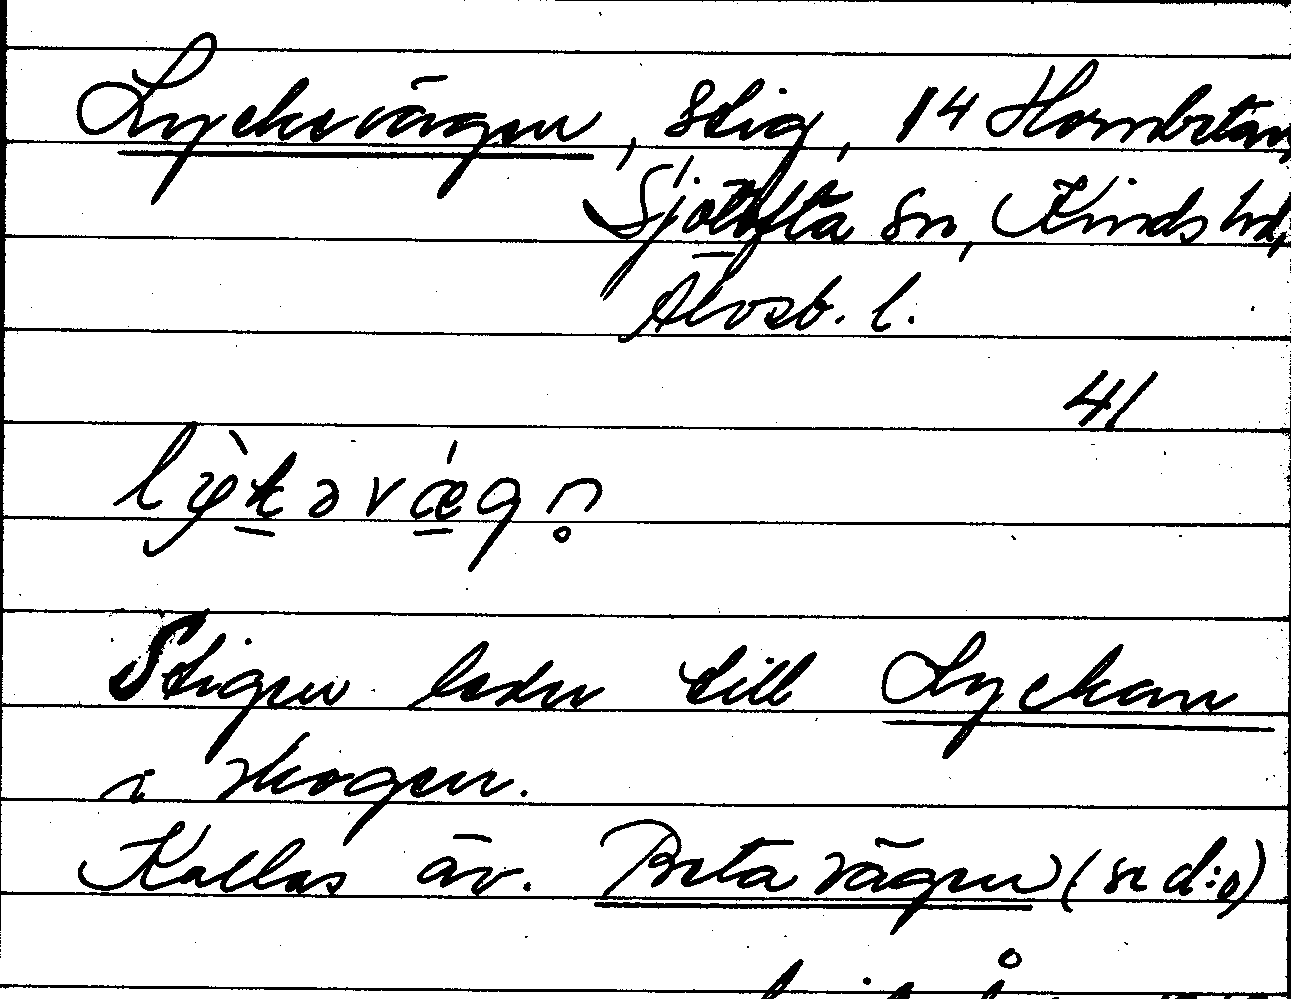 Lyckevägen, stig, 14 Hornbetan,
Sjötofta sn, Kinds hd,
Älvsb. l.
41
lỳkəvǽgn̥
Stigen leder till Lyckan
i skogen.
Kallas äv. Betavägen (se d:o)